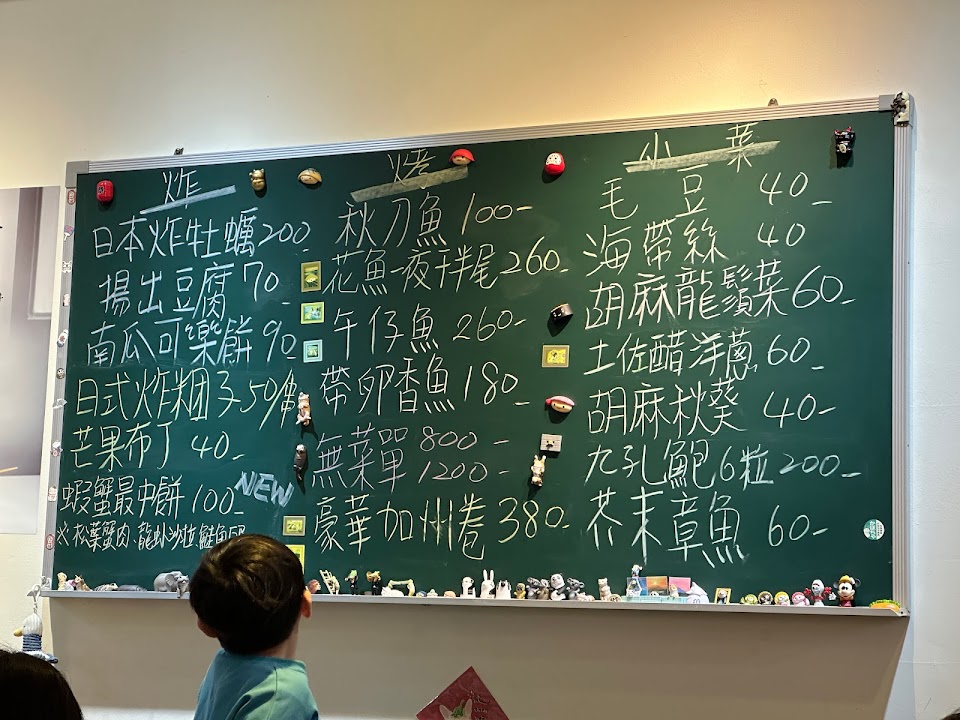 炸
日本炸牡蠣200
揚出豆腐70
南瓜可樂餅90
日式炸粿团子50/串
芒果布丁40
蝦蟹最中餅100
NEW
※松葉蟹肉、龍虾沙拉、鮭魚卵
烤
秋刀魚100
花魚一夜干半尾260
午仔魚260
帶卵香魚180
無菜單800
1200
豪華加州卷380
小菜
毛豆40
海帶絲40
胡麻龍鬚菜60
土佐醋洋蔥60
胡麻秋葵40
九孔鮑6粒200
芥末章魚60